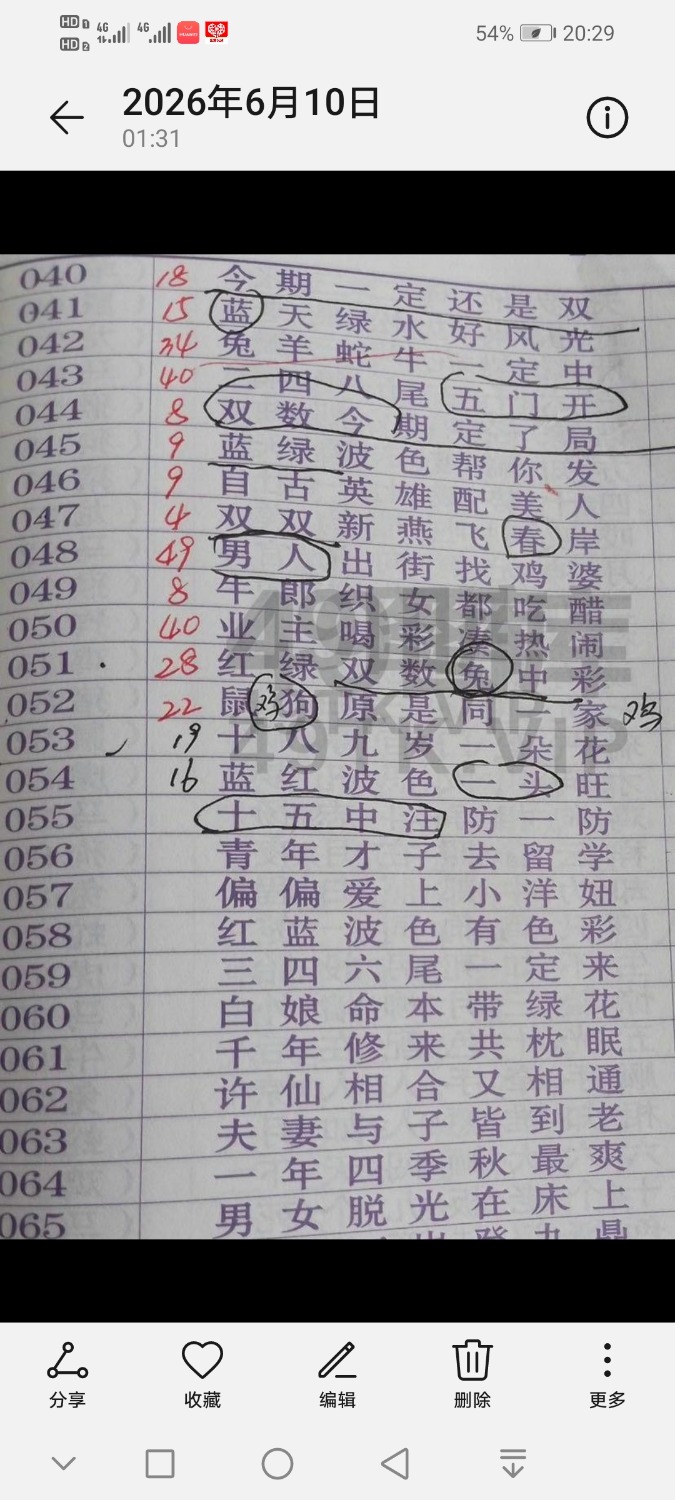 HD 1 4G 4G 54% 20:29
HD 2
2026年6月10日
01:31
040 18 今期一定还是双
041 15 蓝天绿水好风光
042 34 兔羊蛇牛一定中
043 40 二四八尾五门开
044 8 双数今期定了局
045 9 蓝绿波色帮你发
046 9 自古英雄配美人
047 4 双双新燕飞春岸
048 49 男人出街找鸡婆
049 8 牛郎织女都吃醋
050 40 业主喝彩凑热闹
051 28 红绿双数兔中彩
052 22 鼠鸡狗原是同一家 鸡
053 19 十八九岁一朵花
054 16 蓝红波色一头旺
055 十五中汪防一防
056 青年才子去留学
057 偏偏爱上小洋妞
058 红蓝波色有色彩
059 三四六尾一定来
060 白娘命本带绿花
061 千年修来共枕眠
062 许仙相合又相通
063 夫妻与子皆到老
064 一年四季秋最爽
065 男女脱光在床上
分享 收藏 编辑 删除 更多